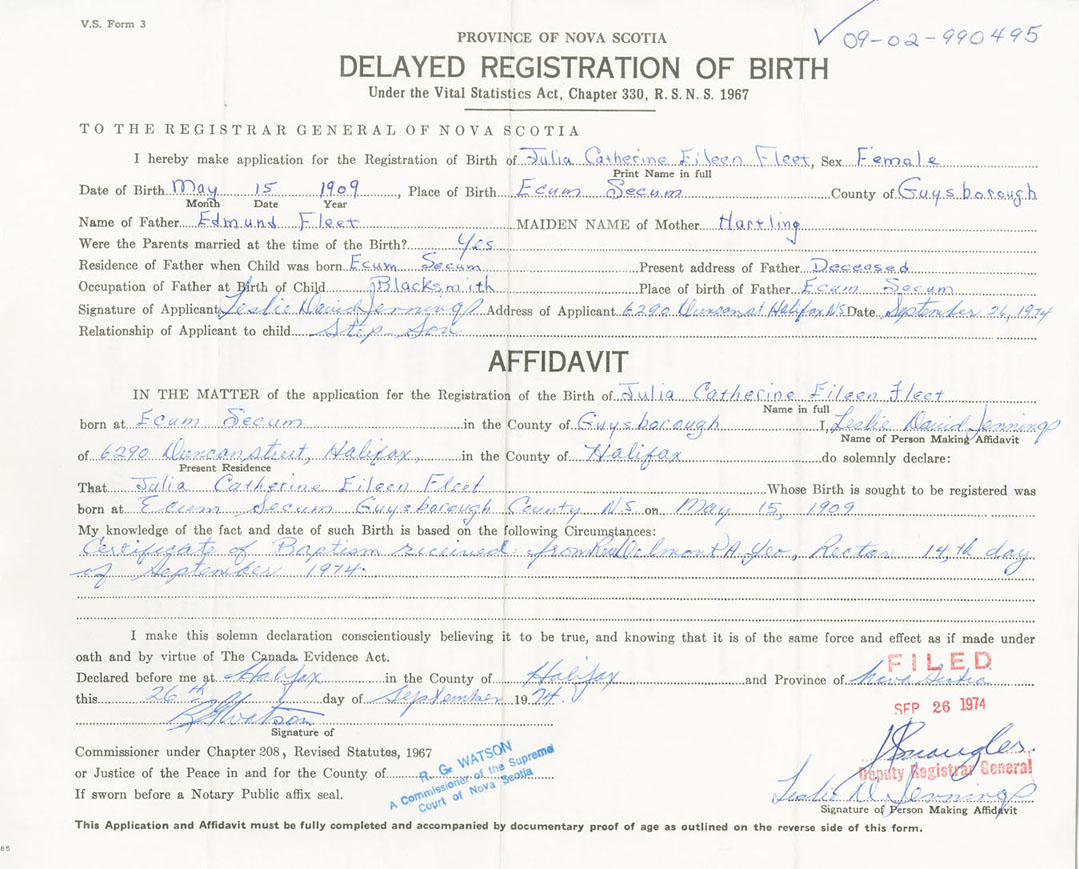 V.S. Form 3
09-02-990495
PROVINCE OF NOVA SCOTIA
DELAYED REGISTRATION OF BIRTH
Under the Vital Statistics Act, Chapter 330, R. S. N. S. 1967
TO THE REGISTRAR GENERAL OF NOVA SCOTIA
I hereby make application for the Registration of Birth of Julia Catherine Eileen Fleet, Sex Female
Print Name in full
Date of Birth May 15 1909, Place of Birth Ecum Secum County of Guysborough
Month Date Year
Name of Father Edmund Fleet MAIDEN NAME of Mother Hartling
Were the Parents married at the time of the Birth? Yes
Residence of Father when Child was born Ecum Secum Present address of Father Deceased
Occupation of Father at Birth of Child Blacksmith Place of birth of Father Ecum Secum
Signature of Applicant Leslie David Jennings Address of Applicant 6290 Duncan st Halifax N.S. Date September 26, 1974
Relationship of Applicant to child Step Son
AFFIDAVIT
IN THE MATTER of the application for the Registration of the Birth of Julia Catherine Eileen Fleet
Name in full
born at Ecum Secum in the County of Guysborough I, Leslie David Jennings
Name of Person Making Affidavit
of 6290 Duncan street, Halifax, in the County of Halifax do solemnly declare:
Present Residence
That Julia Catherine Eileen Fleet Whose Birth is sought to be registered was
born at Ecum Secum Guysborough County N.S. on May 15, 1909
My knowledge of the fact and date of such Birth is based on the following Circumstances:
Certificate of Baptism received from Rev Delmont A. Yeo, Rector 14,th day
of September 1974.
I make this solemn declaration conscientiously believing it to be true, and knowing that it is of the same force and effect as if made under
oath and by virtue of The Canada Evidence Act.
Declared before me at Halifax in the County of Halifax and Province of Nova Scotia
FILED
this 26th day of September 1974.
SEP 26 1974
R G Watson
Signature of
Commissioner under Chapter 208, Revised Statutes, 1967
or Justice of the Peace in and for the County of
R. G. WATSON
A Commissioner of the Supreme
Court of Nova Scotia
Deputy Registrar General
If sworn before a Notary Public affix seal.
Leslie D. Jennings
Signature of Person Making Affidavit
This Application and Affidavit must be fully completed and accompanied by documentary proof of age as outlined on the reverse side of this form.
85